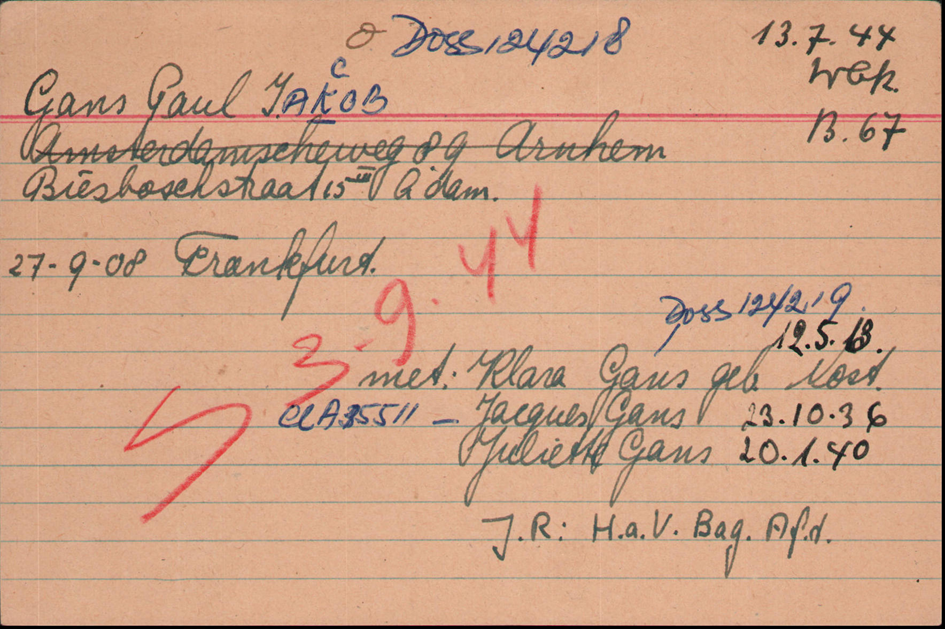 Doss 124218
13.7.44
Wbk.
B.67
c
Gans Paul JAKOB
Amsterdamscheweg 89 Arnhem
Biesboschstraat 15 III A'dam.
27-9-08 Frankfurt.
3-9.44
Doss 124219.
12.5.13.
met: Klara Gans geb Nost.
CCA35511 - Jacques Gans 23.10.36
Juliette Gans 20.1.40
J.R: H.a.V. Bag. Afd.